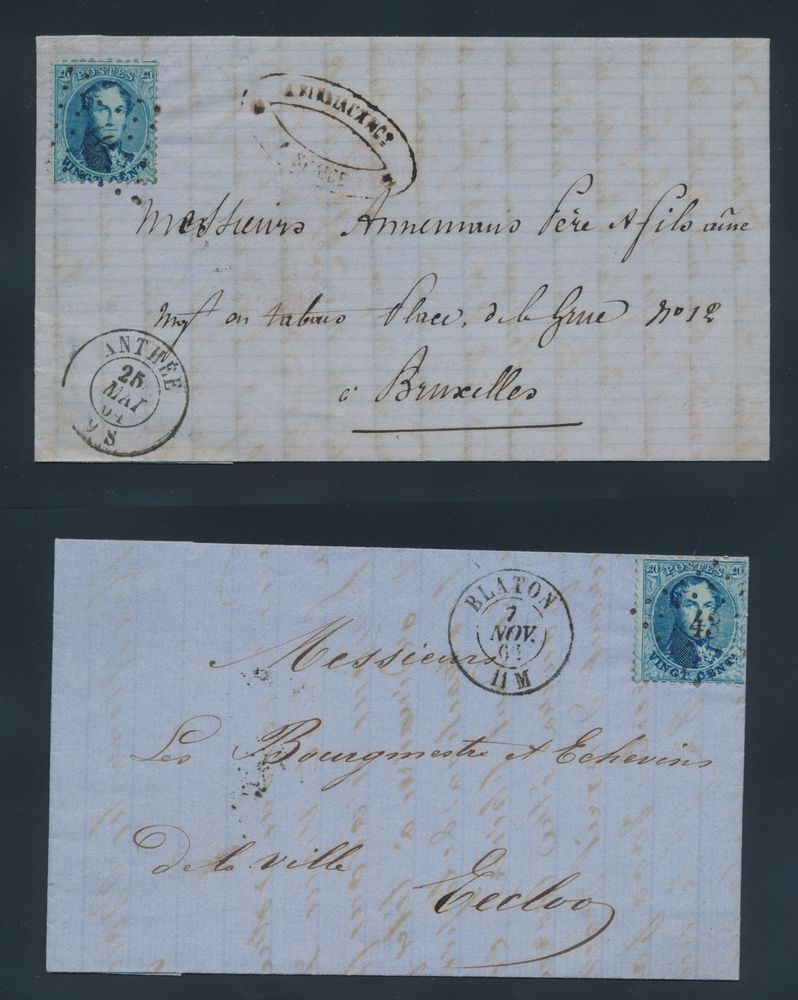 20 POSTES 20
VINGT CENTS
Messieurs Annemans Père & fils aîné
Place de la Grue No 12
à Bruxelles
ANTHÉE
25
MAI
64
9 S
BLATON
7
NOV.
64
11 M
20 POSTES 20
43
VINGT CENTS
Messieurs
Les Bourgmestre & Echevins
de la ville
Eecloo